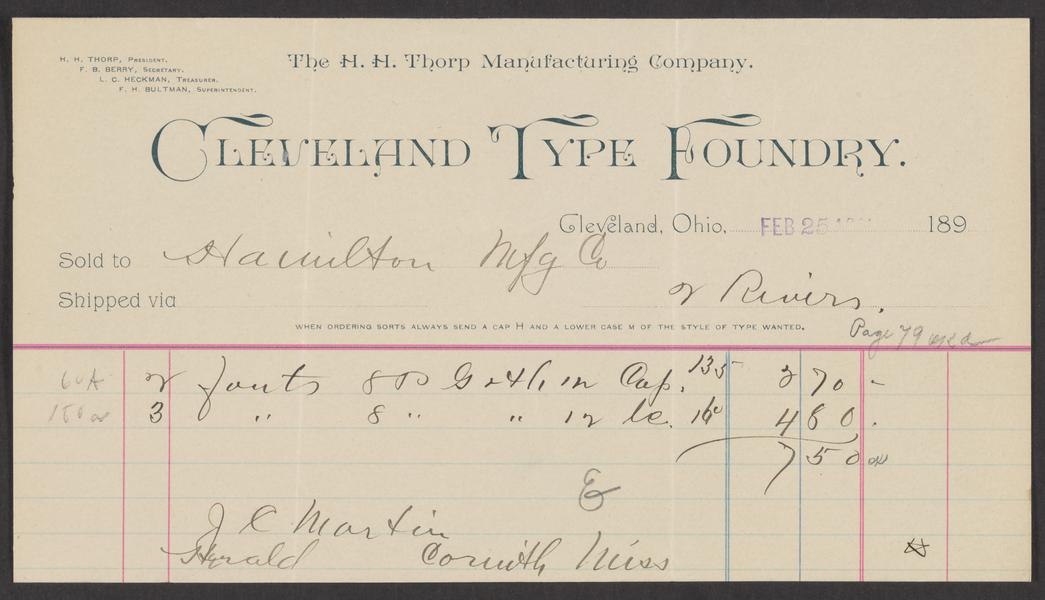 H. H. THORP, PRESIDENT.
F. B. BERRY, SECRETARY.
L. C. HECKMAN, TREASURER.
F. H. BULTMAN, SUPERINTENDENT.
The H. H. Thorp Manufacturing Company.
CLEVELAND TYPE FOUNDRY.
Cleveland, Ohio, FEB 25 189
Sold to Hamilton Mfg Co
Shipped via 2 Rivers.
WHEN ORDERING SORTS ALWAYS SEND A CAP H AND A LOWER CASE M OF THE STYLE OF TYPE WANTED.
Page 79
2 fonts 8 Goth Cap. 135 2 70 -
3 " 8 " " 12 lc. 16 4 80 .
7 50
&
J C Martin
Herald Corinth Miss